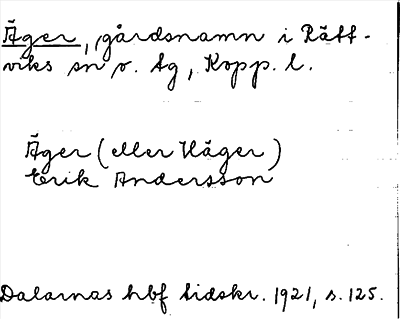 Äger, gårdsnamn i Rätt-
viks sn o. tg, Kopp. l.
Äger (eller Häger)
Erik Andersson
Dalarnas hbf tidskr. 1921, s. 125.